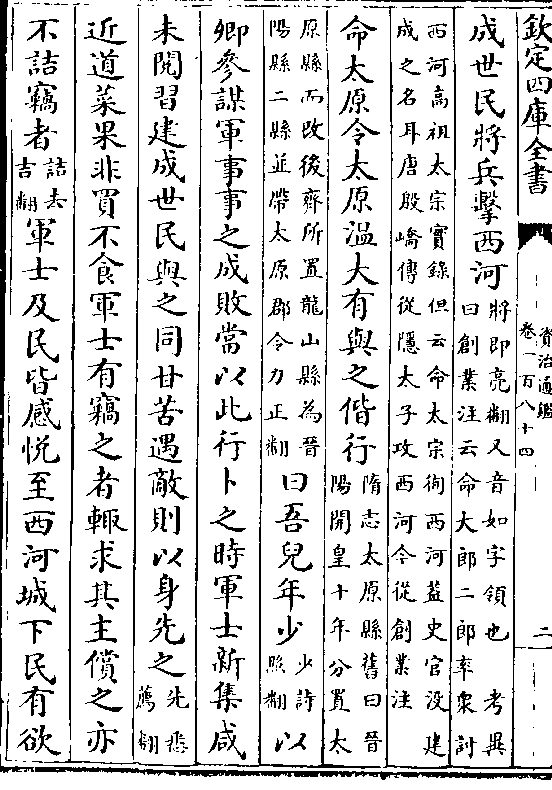 欽定四庫全書
資治通鑑
卷一百八十四
二
成世民將兵擊西河將即亮翻又音如字領也 考異
曰創業注云命大郎二郎率衆討
西河高祖太宗實錄但云命太宗徇西河蓋史官没建
成之名耳唐殷嶠傳從隱太子攻西河今從創業注
命太原令太原溫大有與之偕行隋志太原縣舊曰晉
陽開皇十年分置太
原縣而改後齊所置龍山縣為晉
陽縣二縣並帶太原郡令力正翻曰吾兒年少少詩
照翻以
卿參謀軍事事之成敗當以此行卜之時軍士新集咸
未閱習建成世民與之同甘苦遇敵則以身先之先悉
薦翻
近道菜果非買不食軍士有竊之者輙求其主償之亦
不詰竊者詰去
吉翻軍士及民皆感悦至西河城下民有欲